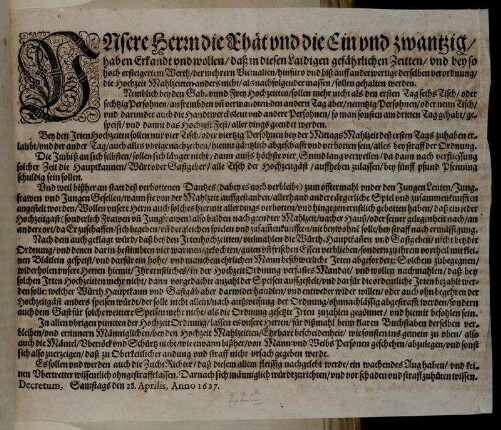 VNsere Herrn die Rhät vnd die Ein vnd zwantzig /
haben Erkandt vnd wollen / daß in diesen Laidigen gefährlichen Zeitten / vnd bey so
hoch ersteigertem Werth / der mehrern Victualien / hinfüro vnd biß auff anderwertige derselben verordnung /
die Hochzeit Mahlzeiten anders nicht / als nachfolgender massen / sollen gehalten werden.
Nemblich bey den Gab. vnnd Frey Hochzeitten / sollen mehr nicht als den ersten Tag sechs Tisch / oder
sechtzig Persohnen / an frembden vñ verwandten den andern Tag aber / neuntzig Persohnen / oder neun Tisch /
vnd darunder auch die Handtwercksleut vnd andere Persohnen / so man sonsten am dritten Tag gehabt / ge-
speist / vnd damit das Hochzeit Fest / aller dings geendet werden.
Bey den Irten Hochzeiten sollen nur vier Tisch / oder viertzig Persohnen bey der Mittags Mahlzeit deß ersten Tags zuhaben er-
laubt / vnd der ander Tag / auch alles vbrige nachzechen / viennt gäntzlich abgeschafft vnd verbotten sein / alles bey straff der Ordnung.
Die Imbiß an sich selbsten / sollen sich länger nicht / dann auffs höchste vier Stund lang verweilen / da dann nach verfliessung
solcher Zeit die Haupt kannen / Würt oder Gastgeber / alle Tisch der Hochzeitgäst / auffheben zulassen / bey fünff pfund Pfenning
schuldig sein sollen.
Vnd weil bißher an statt deß verbottenen Dantzes (dabey es noch verbleibt) zum offtermahl vnder den Jungen Leuten / Jung-
frawen vnd Jungen Gesellen / wann sie von der Mahlzeit auffgestanden / allerhand andere ärgerliche Spiel vnd zusammenkunfften
angestelt worden / Wollen vnsere Herrn auch solches hiemit allerdings verbotten / vnd hingegen ernstlich gebotten haben / daß ein jeder
Hochzeitgast (sonderlich Frawen vñ Jungfrawen) also balden nach geendter Mahlzeit / nacher Hauß / oder seiner gelegenheit nach / an
andere ort / da Er zuschaffen / sich begeben / vñ dergleichen spielen vnd zusammenkunfften / nit beywohnen soll / bey straff nach ermässigung.
Nach dem auch geklagt würd / daß bey den Irten hochzeiten / vielmahlen die Würth, Haupt kannen vnd Gastgeber / nicht bey der
Ordnung / vnd denen darin bestimbten vier warmen / gekochten / guten vñ frischen Essen verbleiben / sondern zu ihrem vortheil mit kleinen
Blättlein gespeist / vnd darfür ein hohe / vnd manchem ehrlichen Mann beschwerliche Irten abgefordert: Solchem zubegegnen /
widerholen vnsere Herren hiemit / Ihr ernstliches / in der Hochzeit Ordnung verfastes Mandat / vnd wollen nachmahlen / daß bey
solchen Irten Hochzeitten mehr nicht / dann vorgedachte anzahl der Speisen auffgesetzt / vnd dan für die ordenliche Irten bezahlt wer-
den solle: welcher Würth Hauptkann vnd Gastgäb aber darwider handelen / vnd entweder wider willen / oder auch ohn begehren der
Hochzeitgäst anders speisen würde / der solle nicht allein / nach außweisung der Ordnung / ohnnachlässig abgestrafft werden / sondern
auch dem Gast für solche weittere Speisen mehr nicht / als die Ordnung gesetzte Irten zuzahlen gegönnet / vnd hiemit befohlen sein.
In allen vbrigen puncten der Hochzeit Ordnung / lassen es vnsere Herren / für dißmahl beim klaren Buchstaben derselben ver-
bleiben / vnd erinnern Männiglichen / bey den Hochzeit Mahlzeitten / Ehrbare bescheidenheit / wie sonsten ins gemein zu oben / also
auch die Mäntel / Vberöck vnd Schürtz nicht / wie etwann bißher / von Mann vnd Weibs Personen geschehen / abzulegen / vnd sonst
sich also zuerzeigen / daß zu Oberkeitlicher andung vnd straff nicht vrsach gegeben werde.
Es sollen vnd werden auch die Zucht Richter / daß diesem allem fleissig nachgelebt werde / ein wachendes Aug haben / vnd kei-
nen Vbertretter wissentlich ohngestrafft lassen. Darnach sich männiglich würdt zurichten / vnd vor schaden vnd straff zuhüten wissen.
Decretum, Sambstags den 28. Aprilis, Anno 1627.